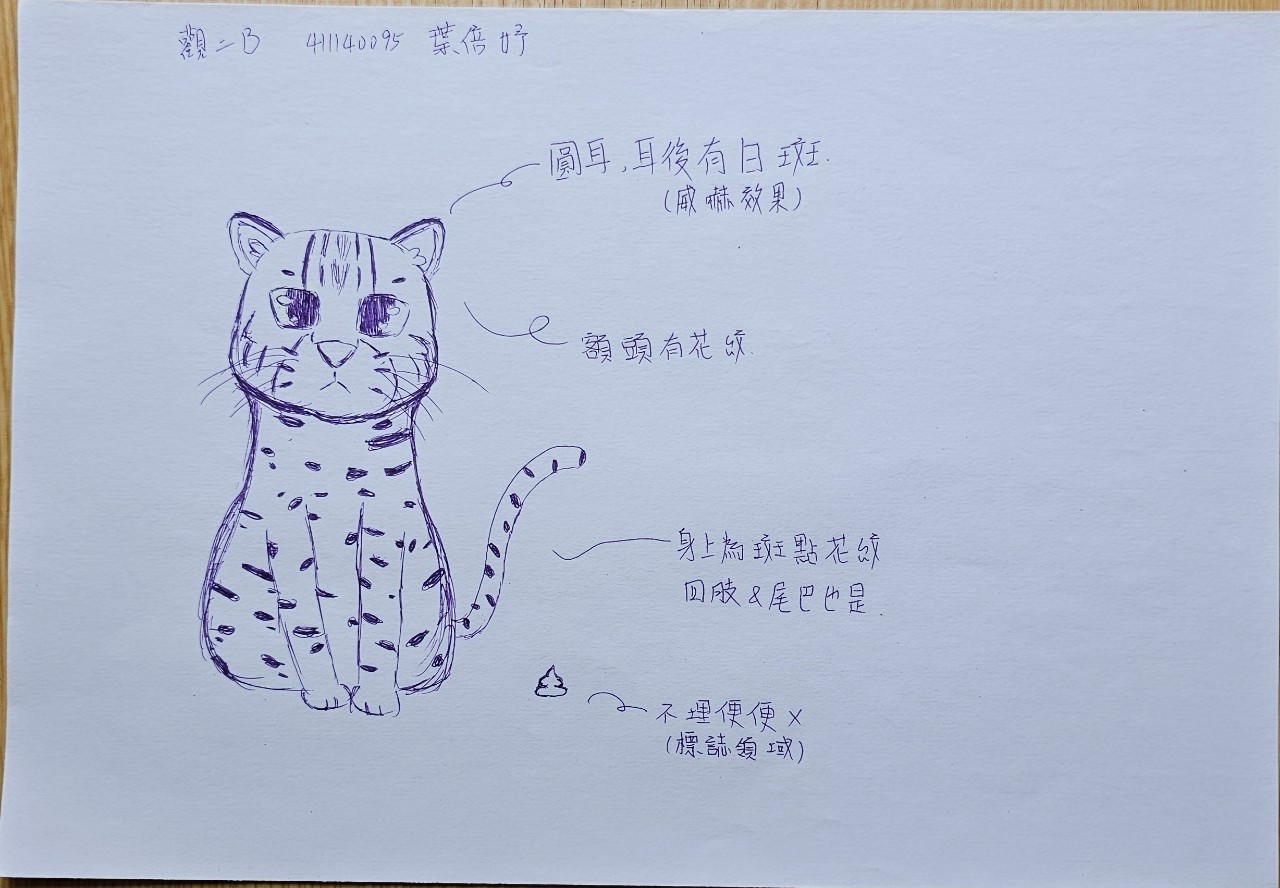 觀二B 411140095 葉倍妤
圓耳,耳後有白斑.
(威嚇效果)
額頭有花紋.
身上為斑點花紋
四肢&尾巴也是.
不埋便便x
(標誌領域)